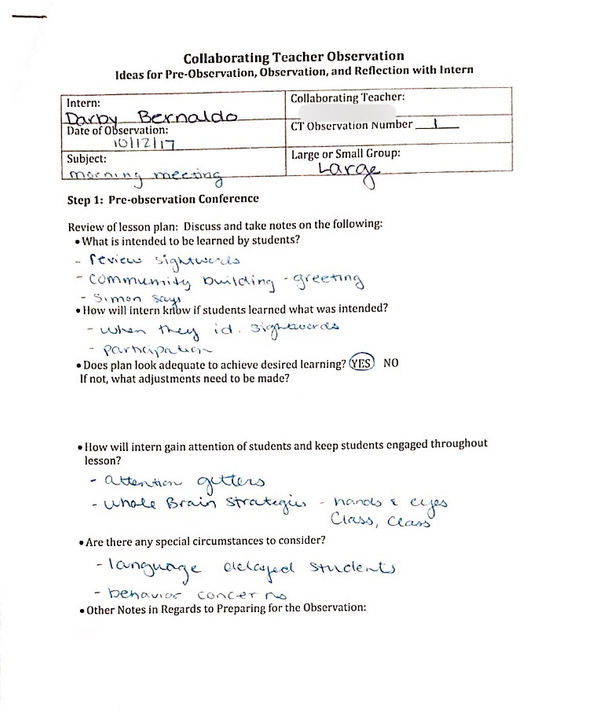 Collaborating Teacher Observation
Ideas for Pre-Observation, Observation, and Reflection with Intern
Intern:
Darby Bernaldo
Collaborating Teacher:
Date of Observation:
10/12/17
CT Observation Number 1
Subject:
morning meeting
Large or Small Group:
Large
Step 1: Pre-observation Conference
Review of lesson plan: Discuss and take notes on the following:
• What is intended to be learned by students?
- review sightwords
- community building - greeting
- Simon says
• How will intern know if students learned what was intended?
- when they id. sightwords
- participation
• Does plan look adequate to achieve desired learning? YES NO
If not, what adjustments need to be made?
• How will intern gain attention of students and keep students engaged throughout
lesson?
- attention getters
- Whole Brain Strategies - hands & eyes
Class, Class
• Are there any special circumstances to consider?
- language delayed students
- behavior concerns
• Other Notes in Regards to Preparing for the Observation: